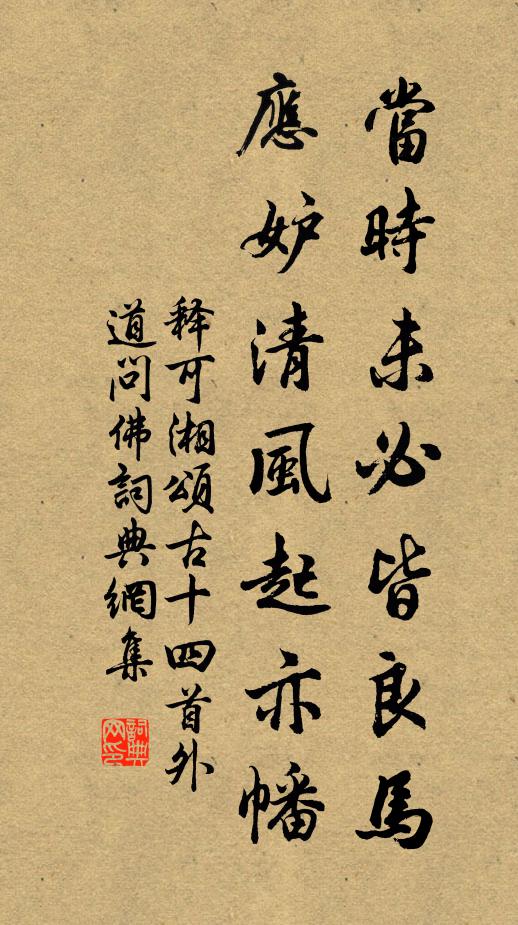 當時未必皆良馬
應妒清風起亦幡
释可湘頌古十四首外
道問佛詞典網集
詞典
网印